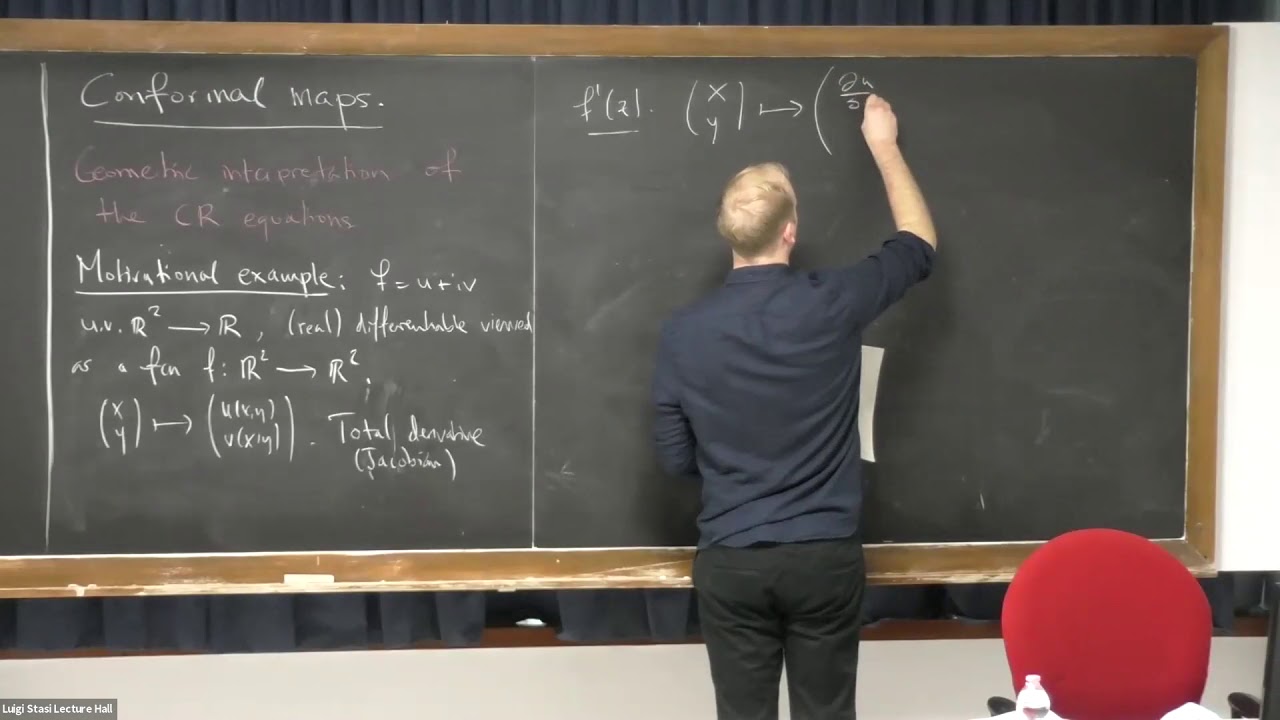 Conformal maps.
Geometric interpretation of
the CR equations
Motivational example: f = u+iv
u.v. ℝ² → ℝ, (real) differentiable viewed
as a fcn f: ℝ² → ℝ²,
(x y) ↦ (u(x,y) v(x,y)). Total derivative
(Jacobian)
f'(z). (x y) ↦ ( ∂u/∂
Luigi Stasi Lecture Hall